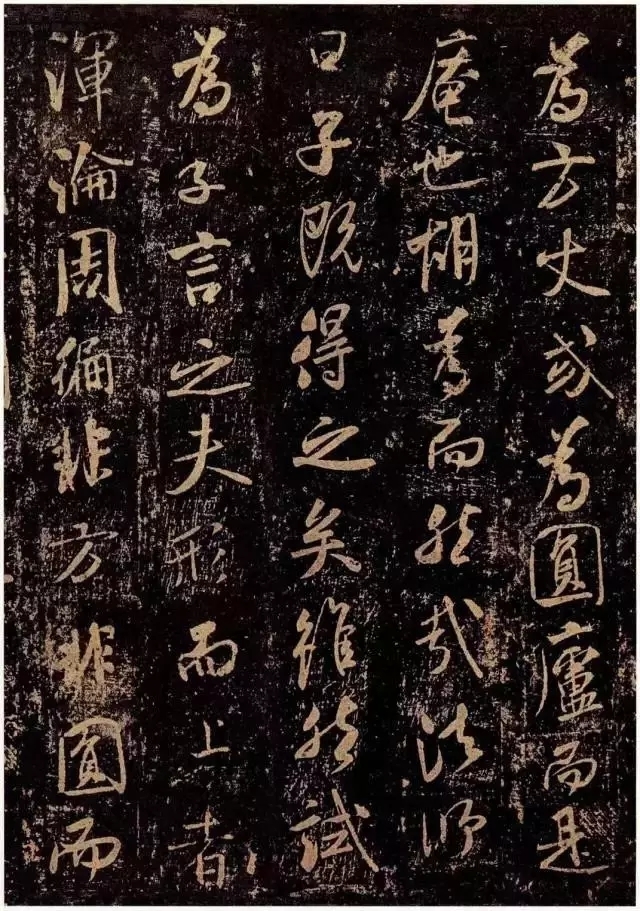 為方丈或為圓廬而是
庵也胡為而然哉法師
曰子既得之矣雖然試
為子言之夫形而上者
渾淪周徧非方非圓而